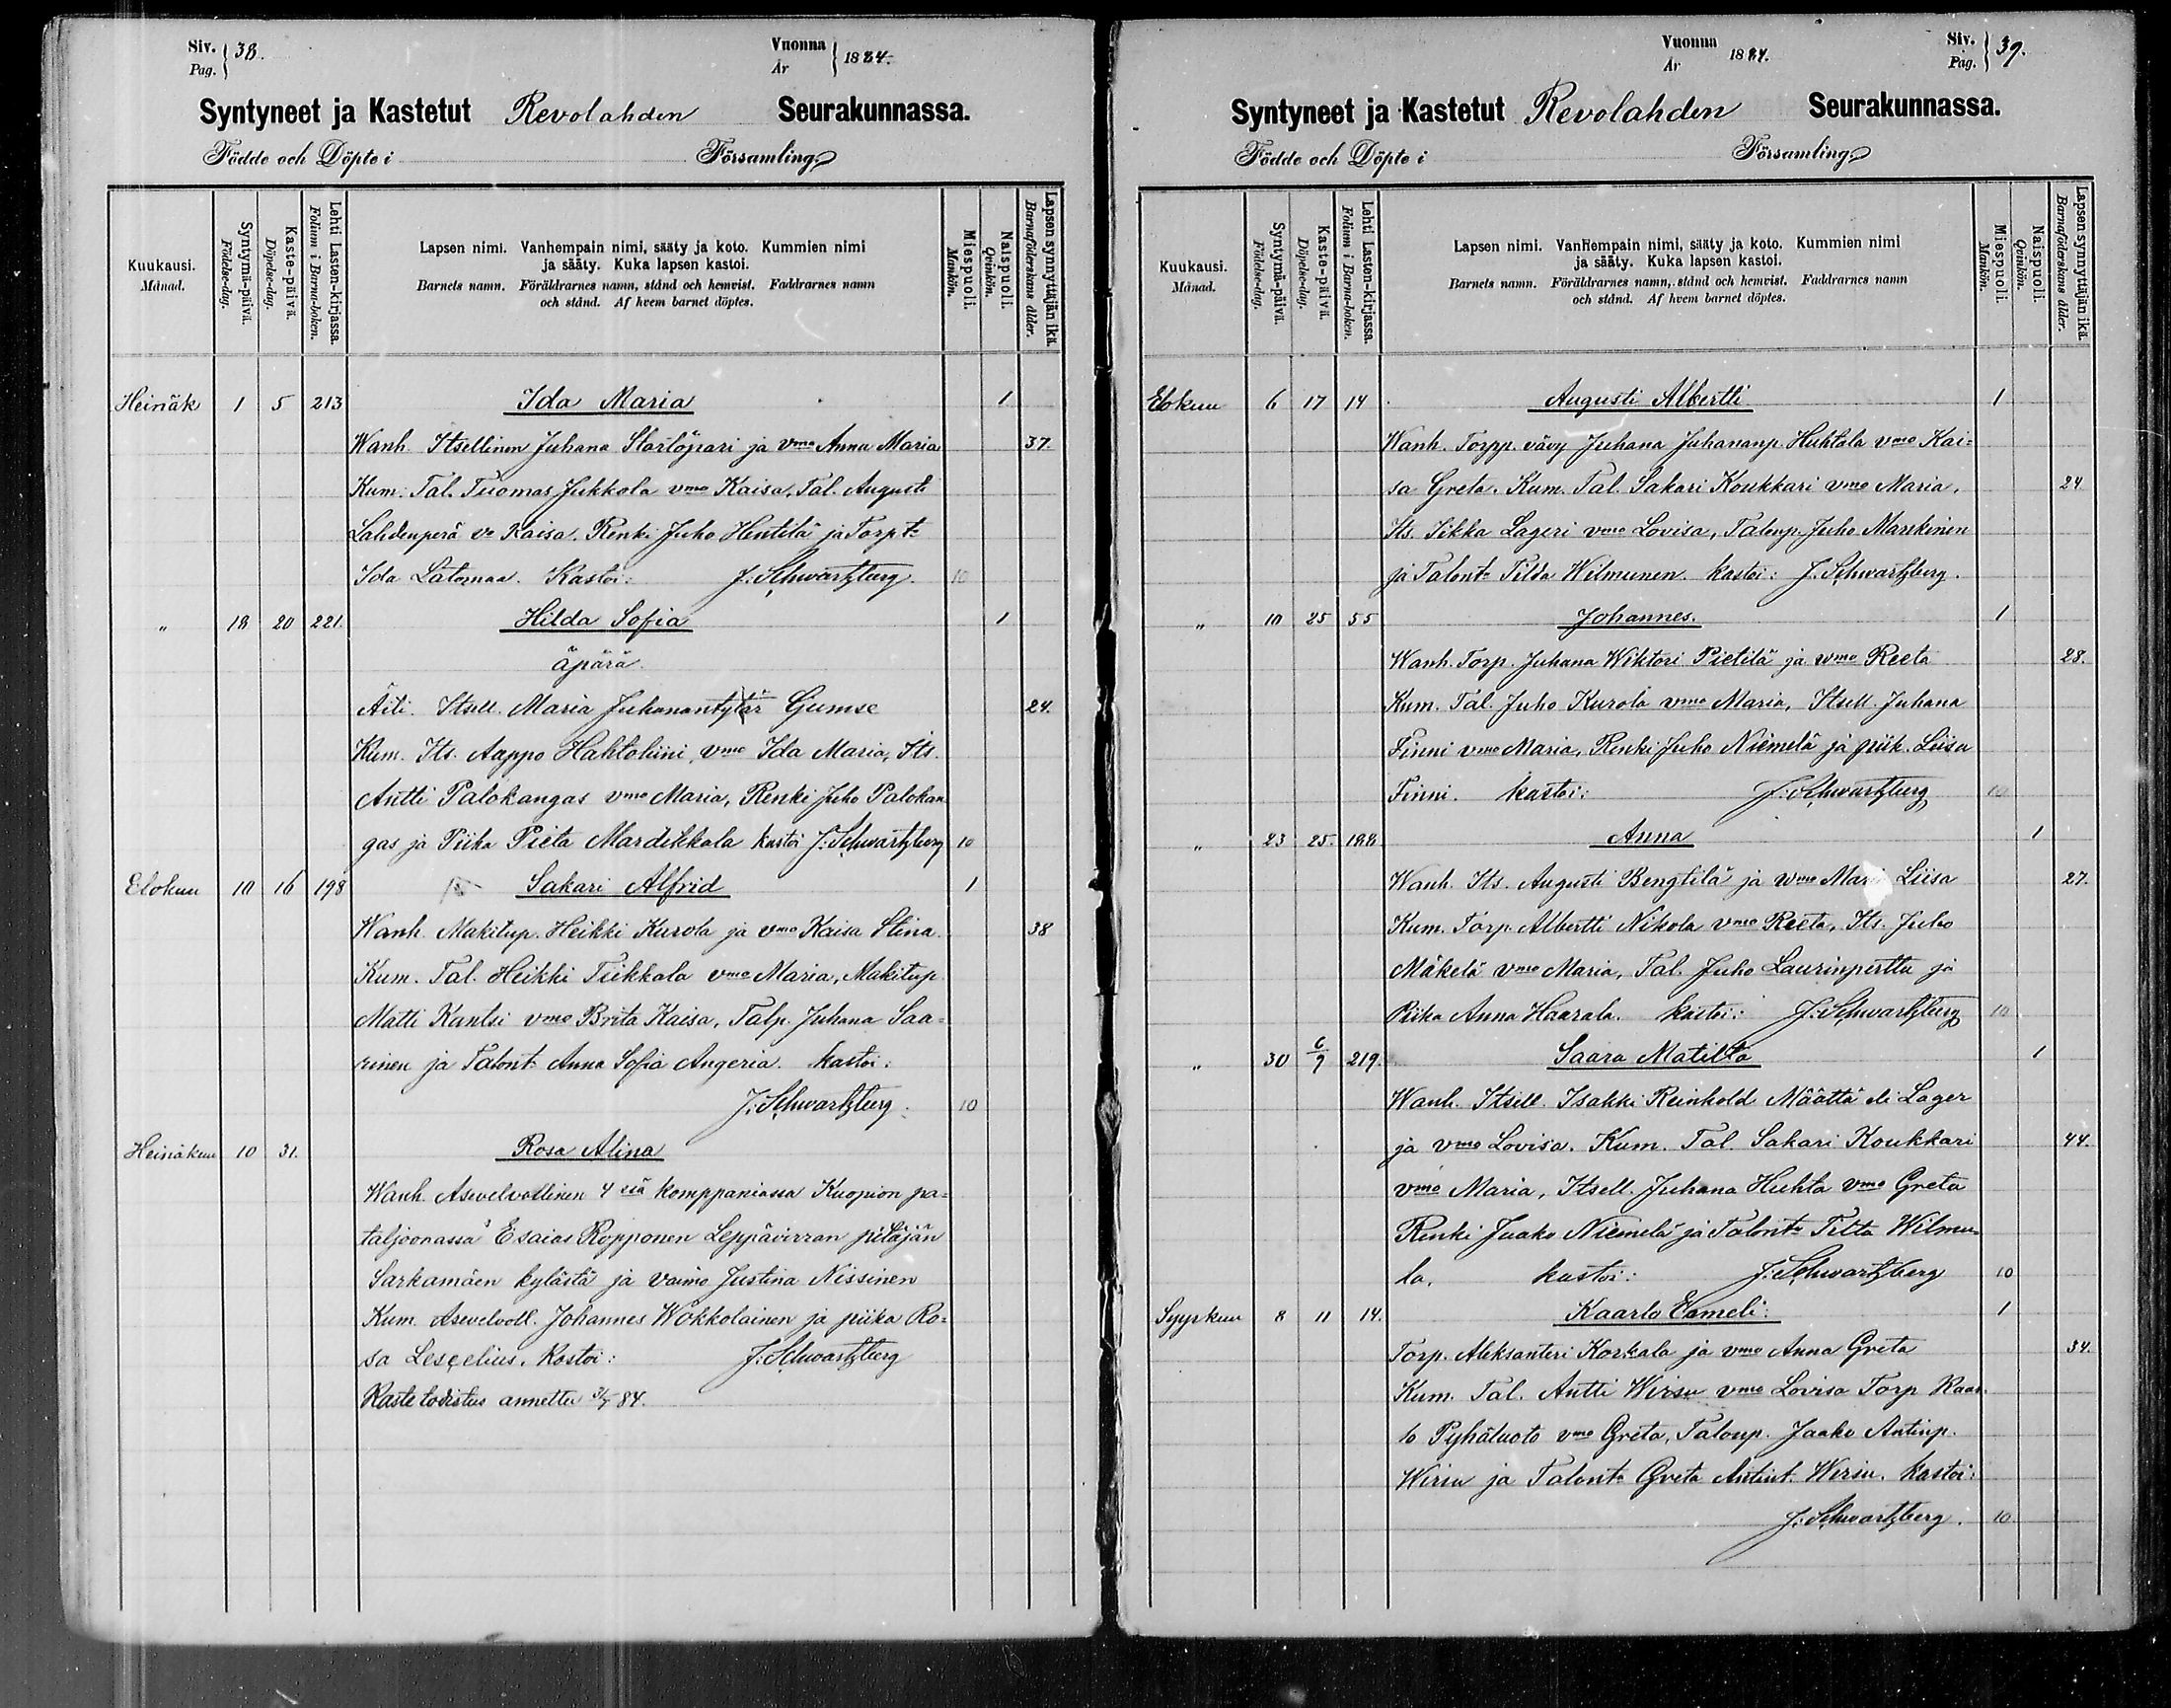 Siv. Pag. } 38.
Vuonna År } 1884.
Syntyneet ja Kastetut Revolahden Seurakunnassa.
Födde och Döpte i Församling
Kuukausi. Månad.
Syntymä-päivä. Födelse-dag.
Kaste-päivä. Döpelse-dag.
Lehti Lasten-kirjassa. Folium i Barna-boken.
Lapsen nimi. Vanhempain nimi, sääty ja koto. Kummien nimi
ja sääty. Kuka lapsen kastoi.
Barnets namn. Föräldrarnes namn, stånd och hemvist. Faddrarnes namn
och stånd. Af hvem barnet döptes.
Miespuoli. Mankön.
Naispuoli. Qvinkön.
Lapsen synnyttäjän ikä. Barnaföderskans ålder.
Heinäk 1 5 213 Ida Maria 1
Wanh. Itsellinen Juhana Starlöjvari ja vmo Anna Maria 37.
Kum. Tal. Tuomas Jukkola vmo Kaisa, Tal. Augusti
Lahdenperä vo Kaisa. Renki Juho Hentilä ja Torpt:
Ida Latomaa. Kastoi: J. Schwartzberg. 10
" 18 20 221. Hilda Sofia 1
äpärä.
Äiti. Itsell. Maria Juhanantytär Gumse 24.
Kum. Its. Aappo Hahtohiini, vmo Ida Maria, Its.
Antti Palokangas vmo Maria, Renki Juho Palokan
gas ja Piika Pieta Mardikkala kastoi J. Schwartzberg 10
Elokuu 10 16 198 Sakari Alfrid 1
Wanh. Makitup. Heikki Kurola ja vmo Kaisa Stina. 38
Kum. Tal. Heikki Tiikkala vmo Maria, Makitup
Matti Kantsi vmo Brita Kaisa, Talp. Juhana Saa=
rinen ja Talont: Anna Sofia Angeria. kastoi:
J. Schwartzberg. 10
Heinäkuu 10 31. Rosa Alina
Wanh. Asevelvollinen 4 ssä komppaniassa Kuopion pa=
taljoonassa Esaias Ropponen Leppävirran pitäjän
Sarkamäen kylästä ja vaimo Justina Nissinen
Kum. Asevelvoll. Johannes Wokkolainen ja piika Ro=
sa Lescelius. Kastoi: J. Schwartzberg
Kaste todistus annettu 31/7 84.
Vuonna År 1884.
Siv. Pag. } 39.
Syntyneet ja Kastetut Revolahden Seurakunnassa.
Födde och Döpte i Församling
Kuukausi. Månad.
Syntymä-päivä. Födelse-dag.
Kaste-päivä. Döpelse-dag.
Lehti Lasten-kirjassa. Folium i Barna-boken.
Lapsen nimi. Vanhempain nimi, sääty ja koto. Kummien nimi
ja sääty. Kuka lapsen kastoi.
Barnets namn. Föräldrarnes namn, stånd och hemvist. Faddrarnes namn
och stånd. Af hvem barnet döptes.
Miespuoli. Mankön.
Naispuoli. Qvinkön.
Lapsen synnyttäjän ikä. Barnaföderskans ålder.
Elokuu 6 17 14 Augusti Albertti 1
Wanh. Torpp. vävy Juhana Juhananp. Huhtala vmo Kai=
sa Greta. Kum. Tal. Sakari Koukkari vmo Maria, 24
Its. Iikka Lageri vmo Lovisa, Talonp. Juho Mankinen
ja Talont: Tilda Wilmunen. kastoi: J. Schwartzberg.
" 10 25 55 Johannes. 1
Wanh. Torp. Juhana Wiktori Pietilä ja vmo Reeta 28.
Kum. Tal. Juho Kurola vmo Maria, Itsell. Juhana
Finni vmo Maria, Renki Juho Niemelä ja piik. Liisa
Finni. kastoi: J. Schwartzberg 10
" 23 25. 188 Anna 1
Wanh. Its. Augusti Bengtilä ja vmo Liisa 27.
Kum. Torp. Albertti Nikola vmo Reeta, Its. Juho
Mäkelä vmo Maria, Tal. Juho Laurinperttu ja
Piika Anna Haarala. kastoi: J. Schwartzberg 10
" 30 6/9 219. Saara Matilta 1
Wanh. Itsell. Isakki Reinhold Määttä eli Lager
ja vmo Lovisa. Kum. Tal. Sakari Koukkari 44.
vmo Maria, Itsell. Juhana Huhta vmo Greta
Renki Jaako Niemelä ja Talont: Tilta Wilmu=
la. kastoi: J. Schwartzberg 10
Syyskuu 8 11 14. Kaarlo Eemeli. 1
Torp. Aleksanteri Korkala ja vmo Anna Greta 34.
Kum. Tal. Antti Wirsu vmo Lovisa Torp Kaar
lo Pyhäluoto vmo Greta, Talonp. Jaako Antinp.
Wirsu ja Talont: Greta Antint. Wirsu. kastoi:
J. Schwartzberg. 10